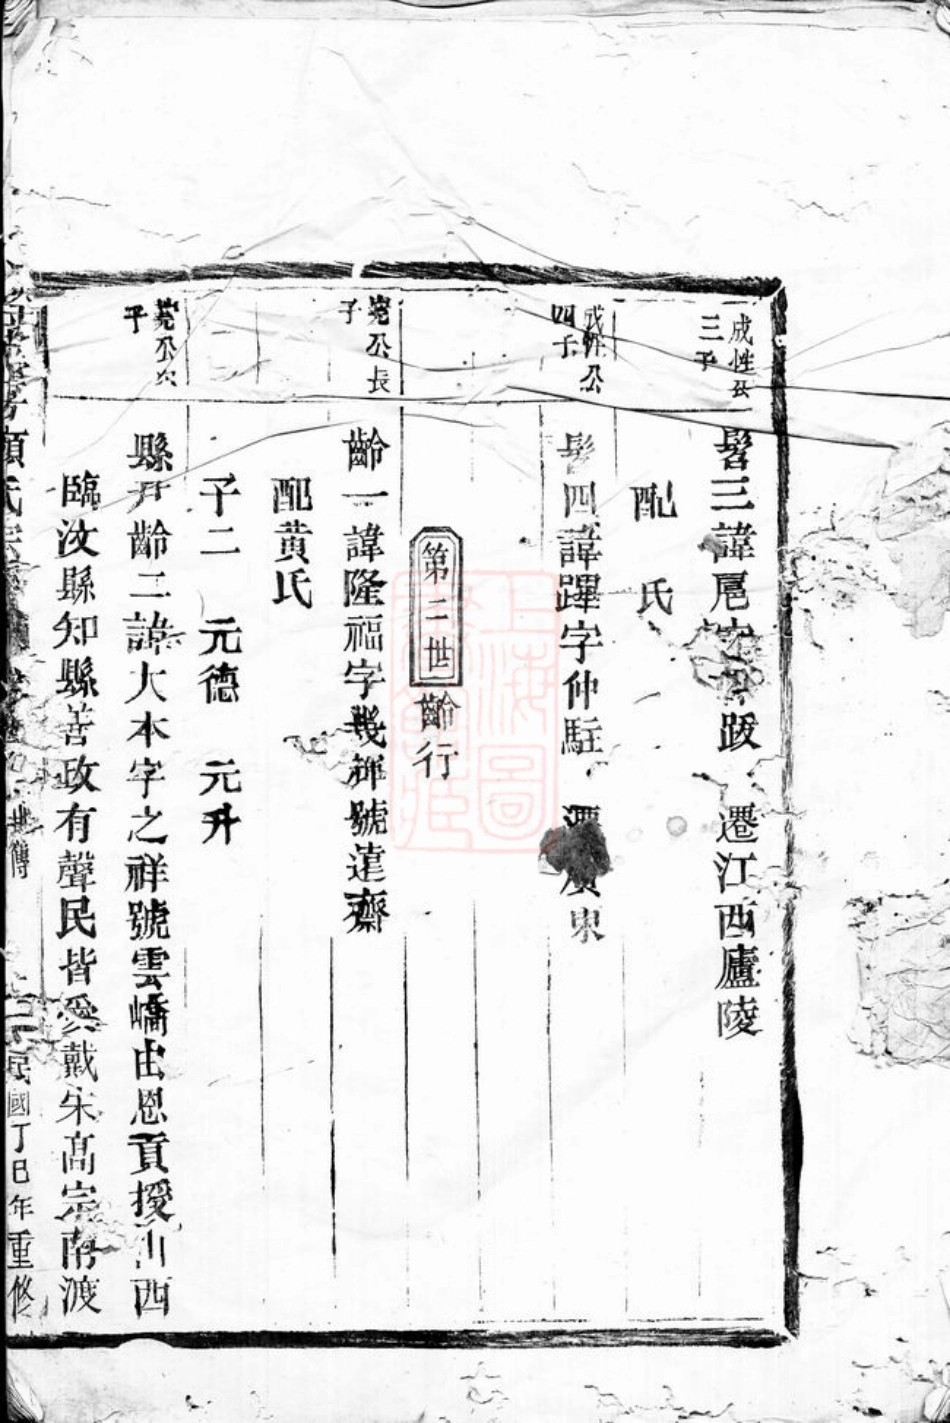 成性公
三子
髫三諱扈字 跋 遷江西廬陵
配 氏
成性公
四子
髫四諱蹕字仲駐 東
第三世
齡行
堯公長
子
齡一諱隆福字 號達齋
配黄氏
子二 元德 元升
堯公次
子
縣尹齡二諱大本字之祥號雲嶠由恩貢授山西
臨汝縣知縣善政有聲民皆愛戴宋高宗南渡
世傳
民國丁巳年重修
上海圖